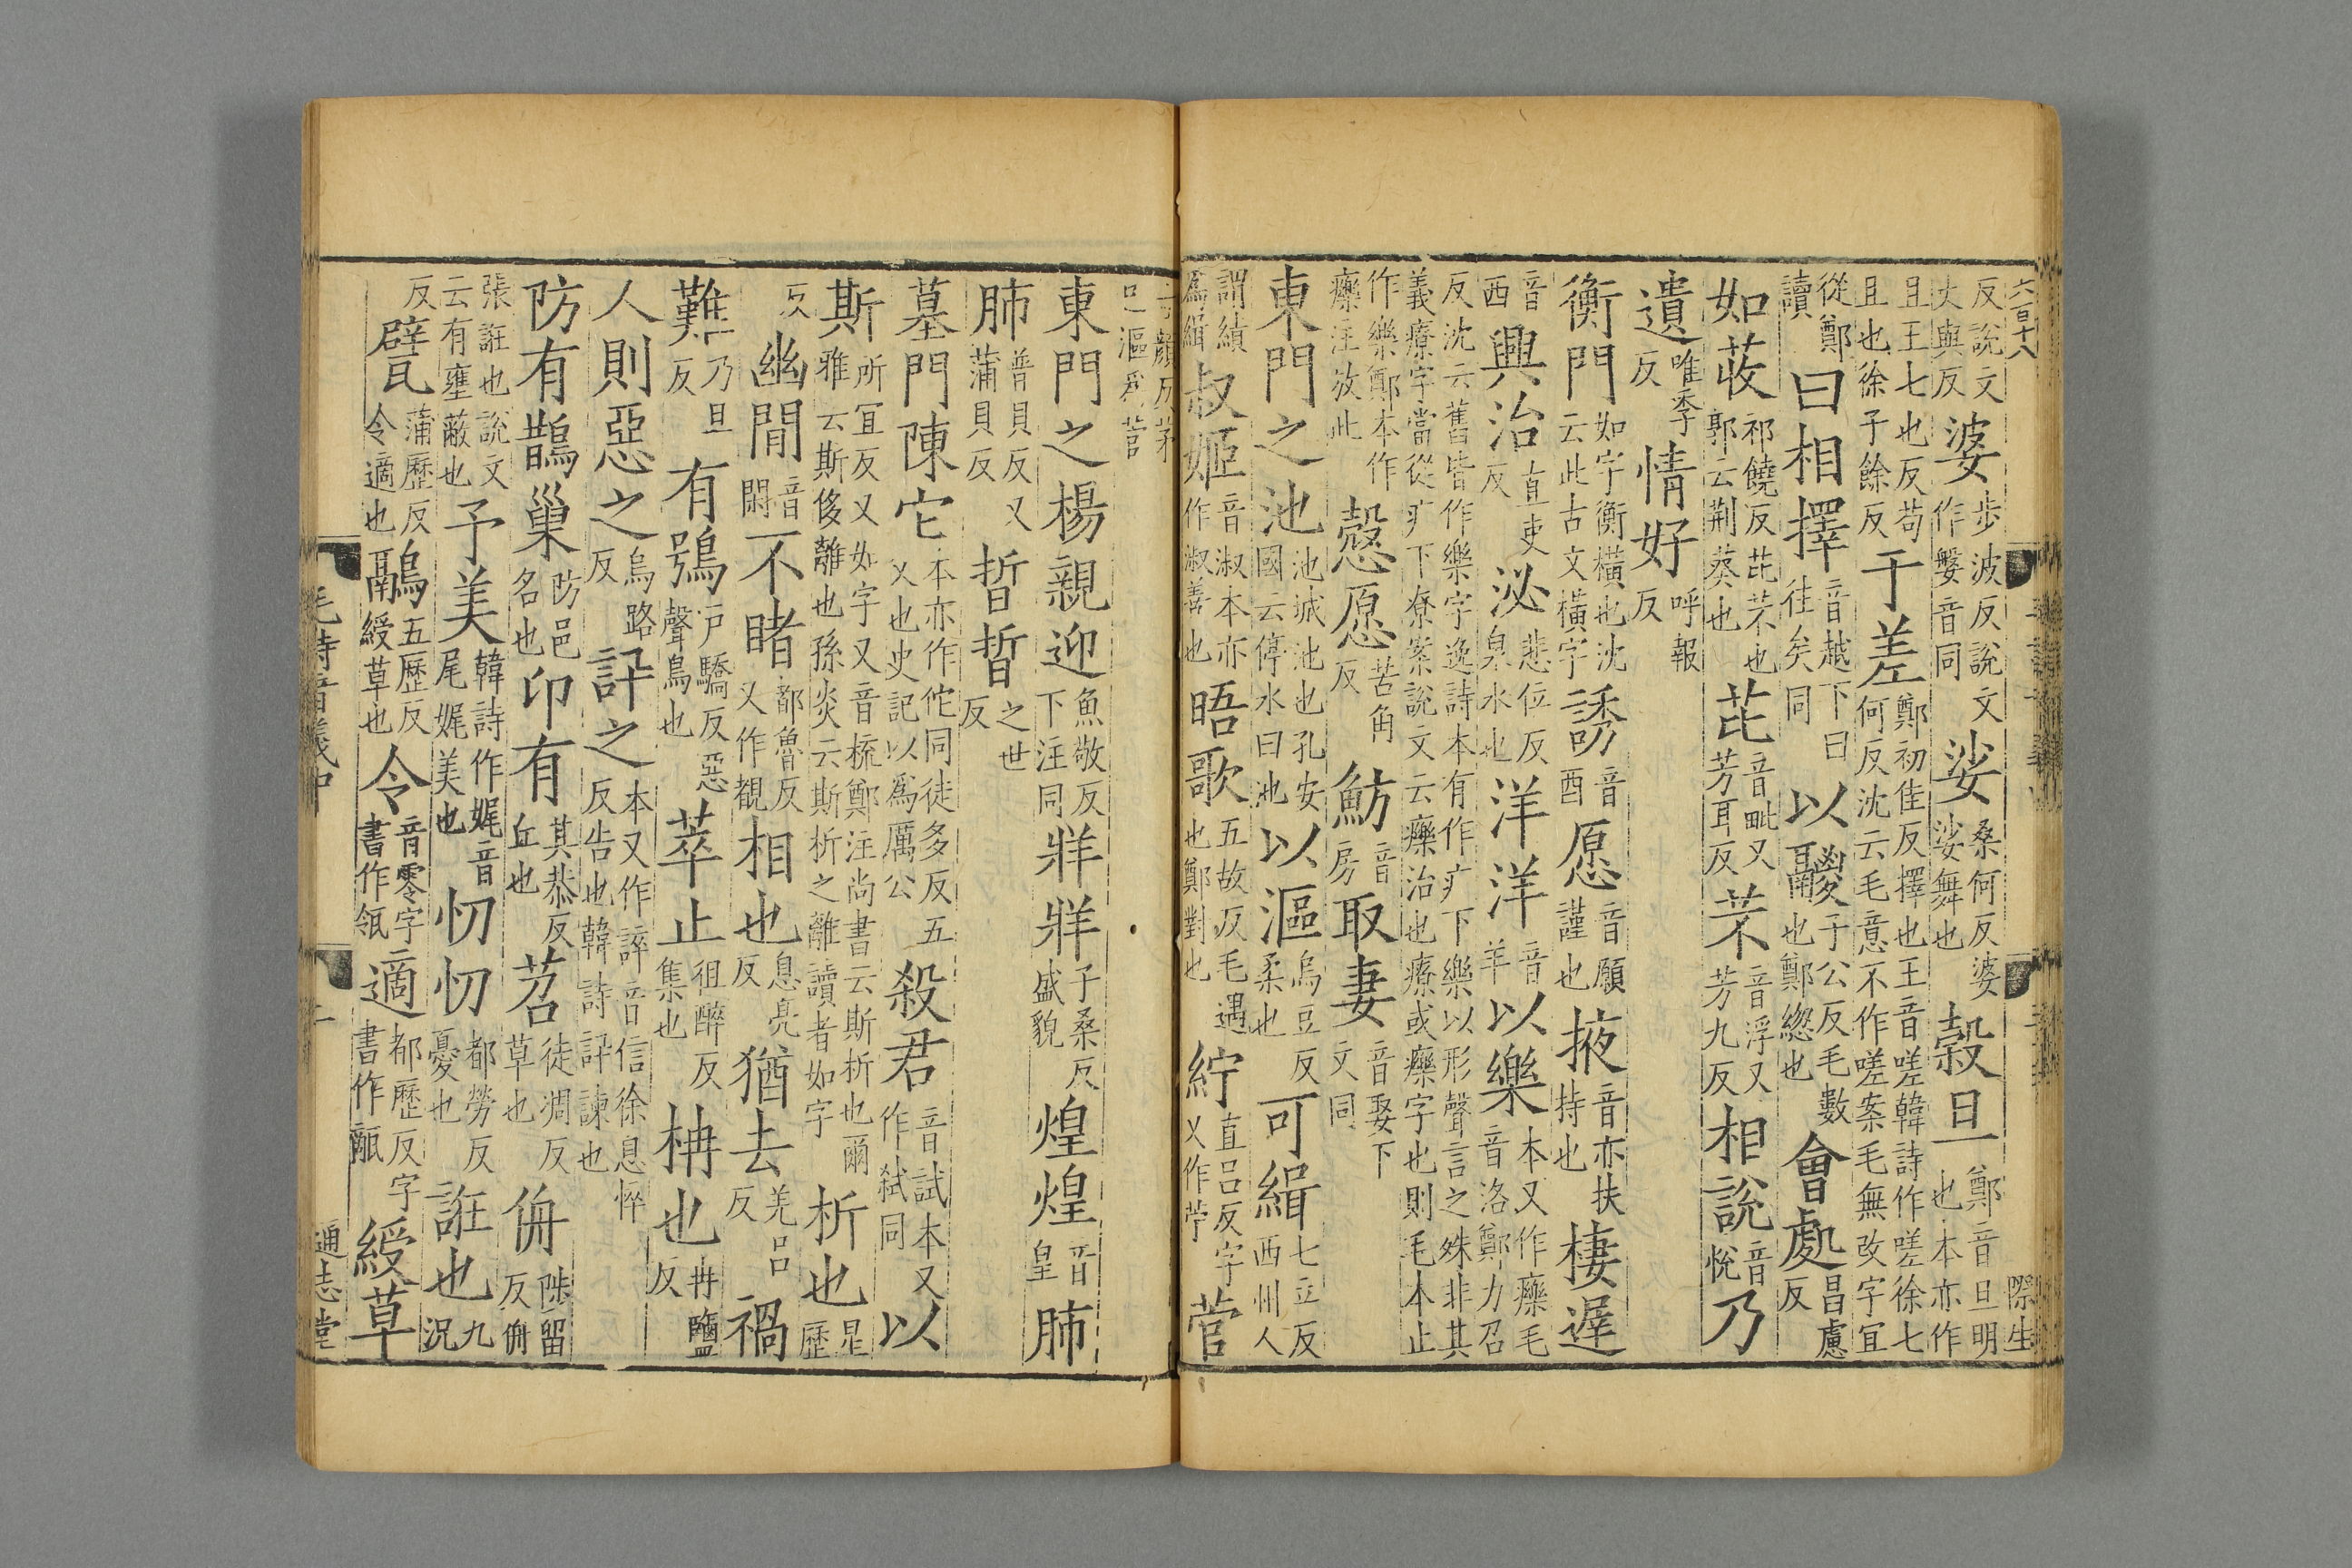 六百十八
際生
反說文丈與反婆步波反說文作媻音同娑桑何反婆娑舞也榖旦鄭音旦明也本亦作
且王七也反苟且也徐子餘反于差鄭初佳反擇也王音嗟韓詩作嗟徐七何反沈云毛意不作嗟案毛無改字宜
從鄭讀曰相擇音越下曰往矣同以鬷子公反毛數也鄭緫也會處昌慮反
如荍祁饒反芘芣也郭云荆葵也芘音毗又芳耳反芣音浮又芳九反相說音悅乃
遺唯季反情好呼報反
衡門如字衡橫也沈云此古文橫字誘音酉愿音願謹也掖音亦扶持也棲遲
音西興治直吏反泌悲位反泉水也洋洋音羊以樂本又作𤻲毛音洛鄭力召
反沈云舊皆作樂字逸詩本有作疒下樂以形聲言之殊非其義療字當從疒下尞案說文云𤻲治也療或𤻲字也則毛本止
作樂鄭本作𤻲注放此慤愿苦角反魴音房取妻音娶下文同
東門之池池城池也孔安國云停水曰池以漚烏豆反柔也可緝七立反西州人
謂績爲緝叔姬音淑本亦作淑善也晤歌五故反毛遇也鄭對也紵直呂反字又作苧菅
顔反茅已漚爲菅
東門之楊親迎魚敬反下注同牂牂子桑反盛貌煌煌音皇肺
肺普貝反又蒲貝反晢晢之世反
墓門陳佗本亦作佗同徒多反五父也史記以爲厲公殺君音試本又作弑同以
斯所宜反又如字又音梳鄭注尚書云斯析也爾雅云斯侈離也孫炎云斯析之離讀者如字析也星歷
反幽閒音閑不睹都魯反又作覩相也息亮反猶去羌呂反禍
難乃旦反有鴞戶驕反惡聲鳥也萃止徂醉反集也柟也冉鹽反
人則惡之烏路反訊之本又作誶音信徐息悴反告也韓詩訊諫也
防有鵲巢防邑名也卬有其恭反丘也苕徒凋反草也侜陟留反侜
張誑也說文云有壅蔽也予美韓詩作娓音尾娓美也忉忉都勞反憂也誑也九況
反甓蒲歷反令適也鷊五歷反綬草也令音零字書作瓴適都歷反字書作甋綬草
毛詩音義中
通志堂